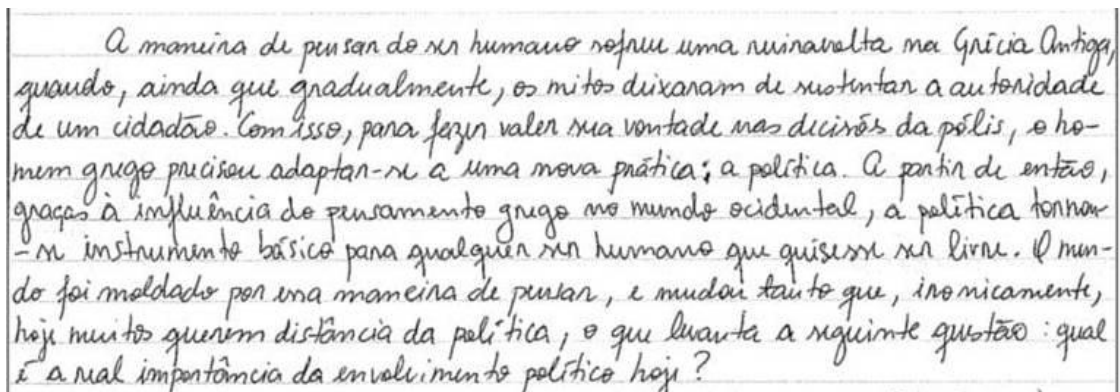 A maneira de pensar do ser humano sofreu uma reiravolta na Grécia Antiga,
quando, ainda que gradualmente, os mitos deixaram de sustentar a autoridade
de um cidadão. Com isso, para fazer valer sua vontade nas decisões da pólis, o ho-
mem grego precisou adaptar-se a uma nova prática: a política. A partir de então,
graças à influência do pensamento grego no mundo ocidental, a política tornou-
-se instrumento básico para qualquer ser humano que quisesse ser livre. O mun-
do foi moldado por essa maneira de pensar, e mudou tanto que, ironicamente,
hoje muitos querem distância da política, o que levanta a seguinte questão: qual
é a real importância do envolvimento político hoje?